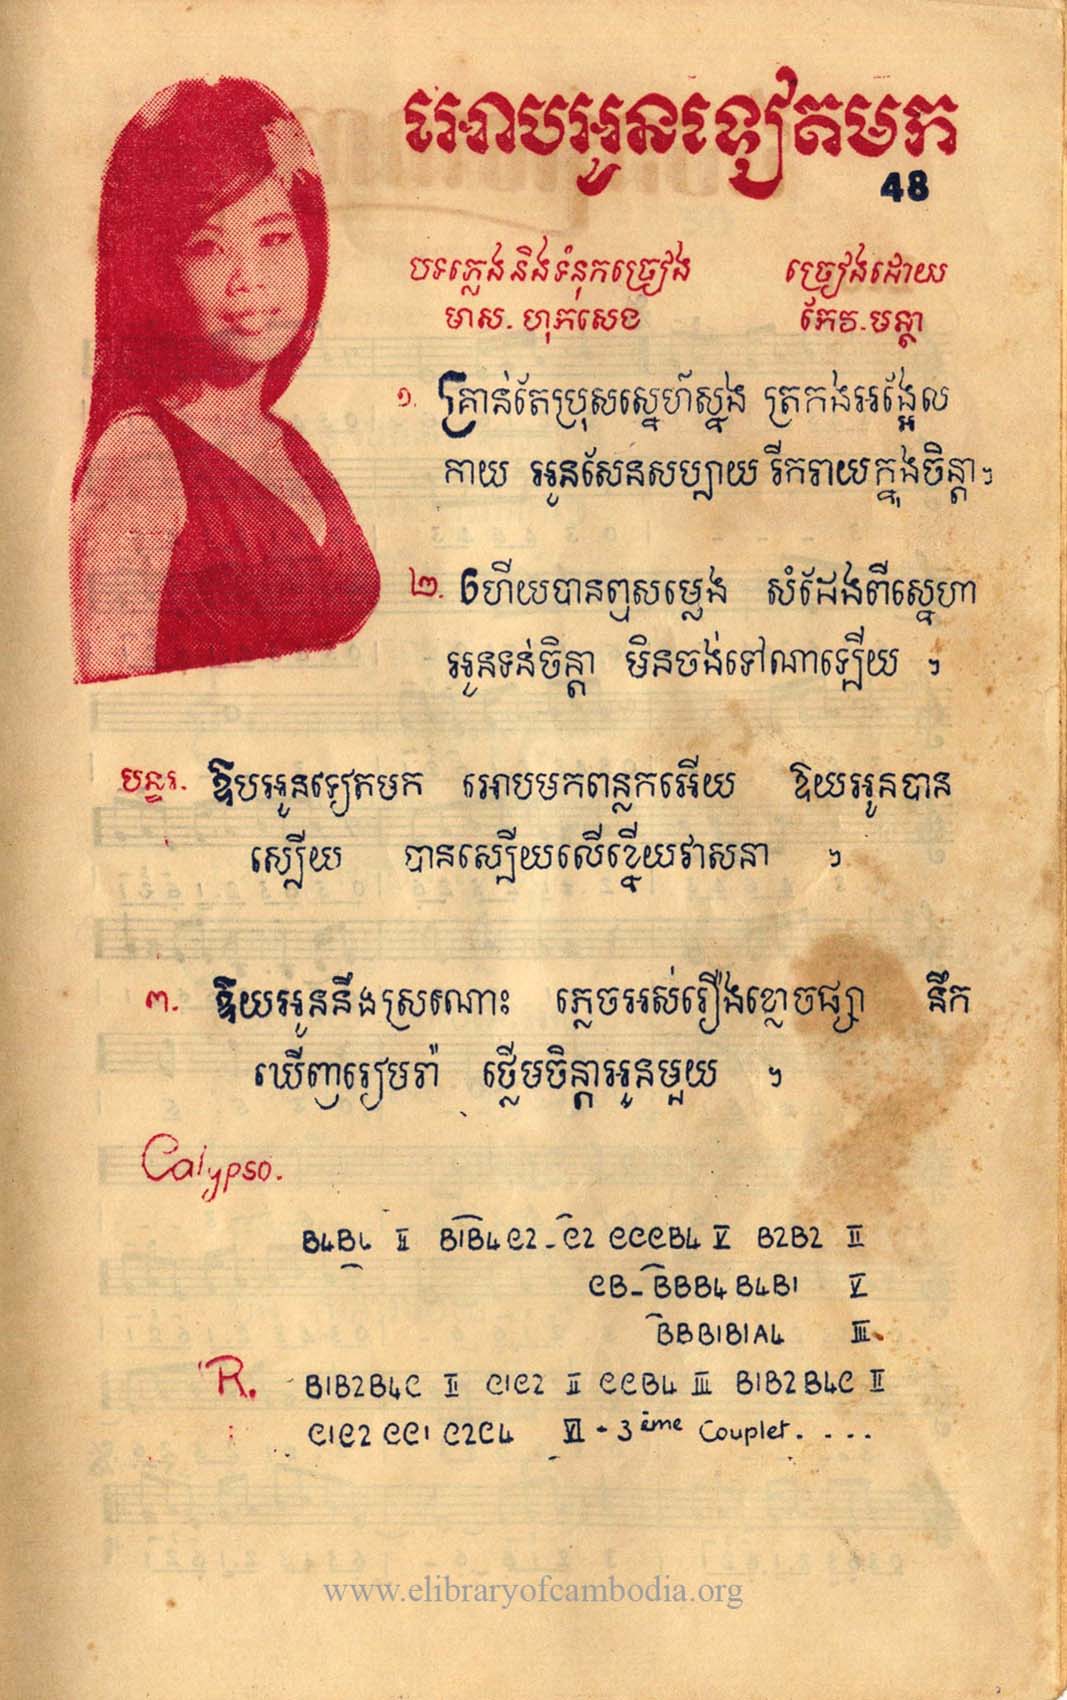 អោបអូនទៀតមក
48
បទភ្លេងនិងទំនុកច្រៀង
ច្រៀងដោយ
មាស. ហុកសេង
កែវ. មន្តា
១. គ្រាន់តែប្រុសស្នេហ៍ស្នង ត្រកងអង្អែល
កាយ អូនសែនសប្បាយ រីករាយក្នុងចិន្តា ។
២. ហើយបានឮសម្លេង សំដែងពីស្នេហា
អូនទន់ចិន្តា មិនចង់ទៅណាឡើយ ។
បន្ទរ. ឱបអូនទៀតមក អោបមកពន្លកអើយ ឱយអូនបាន
ស្បើយ បានស្បើយលើខ្នើយវាសនា ។
៣. ឱយអូននឹងស្រណោះ ភ្លេចអស់រឿងខ្លោចផ្សា នឹក
ឃើញរៀមរ៉ា ថ្លើមចិន្តាអូនមួយ ។
Calypso.
B4B4 II B1B4C2-C2 CCCB4 V B2B2 II
CB-BBB4B4B1 V
BBB1B1A4 III.
R. B1B2B4C II C1C2 II CCB4 III B1B2B4C II
C1C2 CC1 C2C4 VI - 3ème Couplet....
www.elibraryofcambodia.org